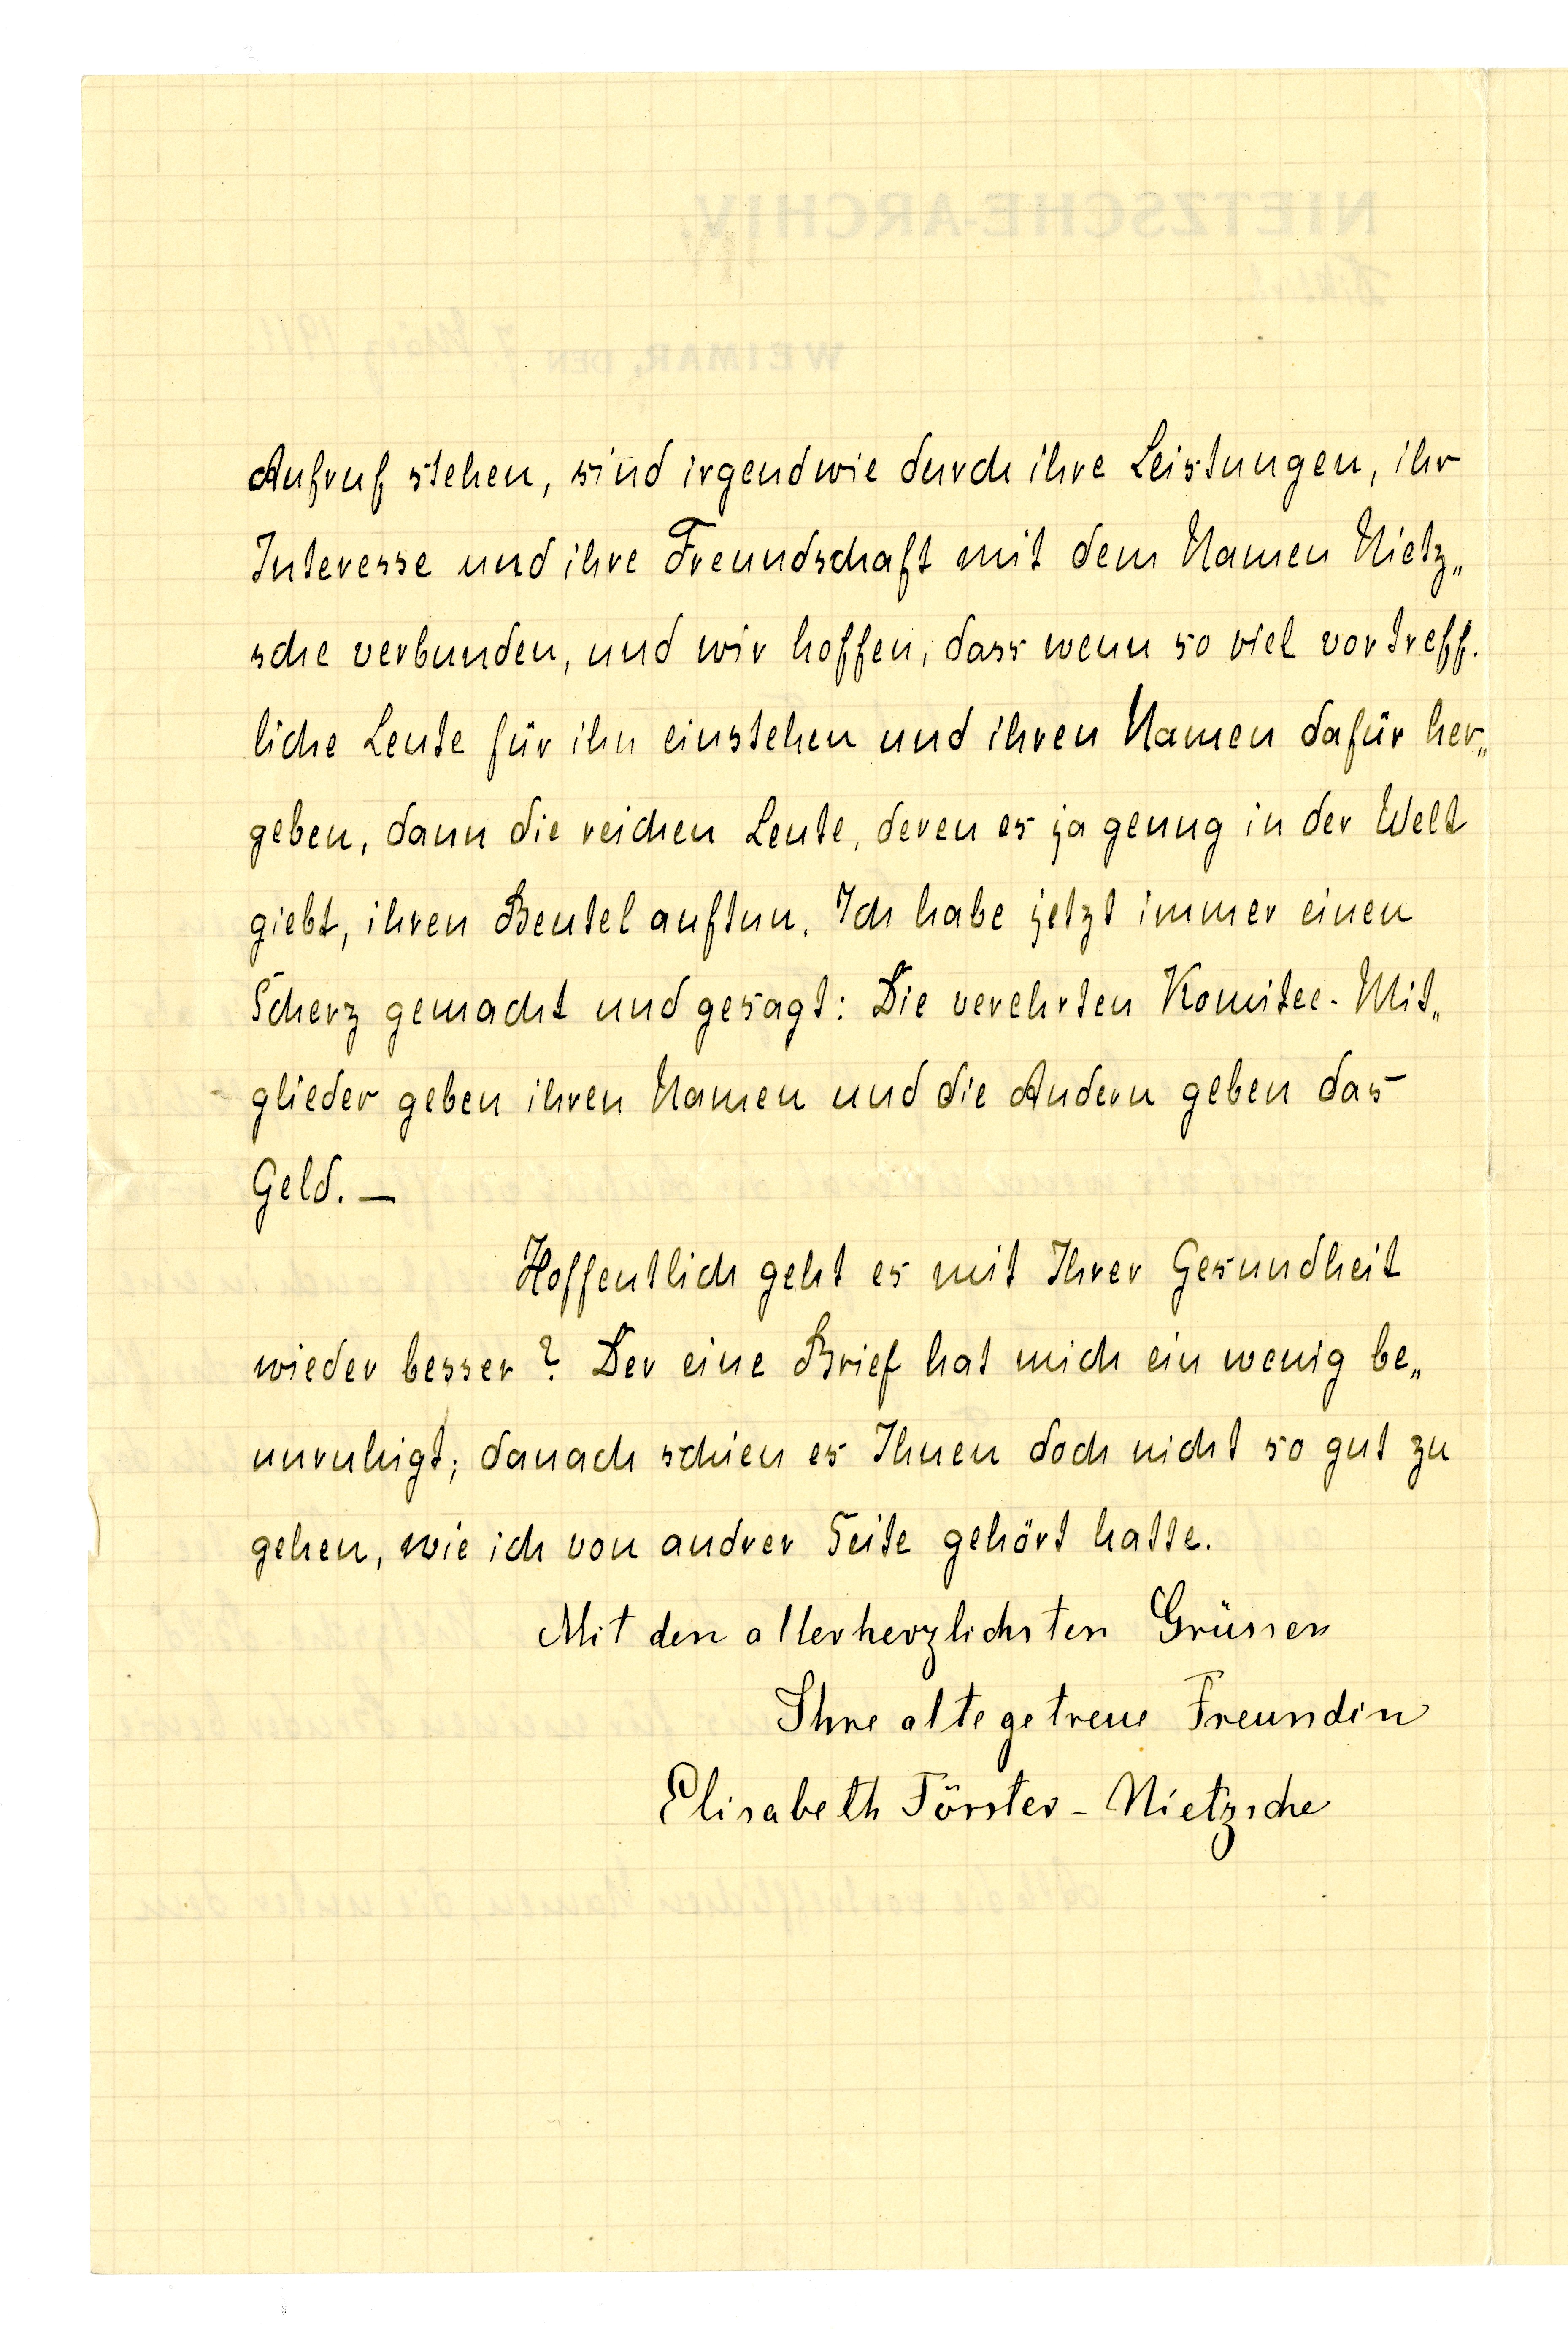 NIETZSCHE-ARCHIV
Diktat.
WEIMAR, DEN 7. März 1911.
Aufruf stehen, sind irgendwie durch ihre Leistungen, ihr
Interesse und ihre Freundschaft mit dem Namen Nietz„
sche verbunden, und wir hoffen, dass wenn so viel vortreff.
liche Leute für ihn einstehen und ihren Namen dafür her„
geben, dann die reichen Leute, deren es ja genug in der Welt
giebt, ihren Beutel auftun. Ich habe jetzt immer einen
Scherz gemacht und gesagt: Die verehrten Komitee-Mit„
glieder geben ihren Namen und die Andern geben das
Geld. —
Hoffentlich geht es mit Ihrer Gesundheit
wieder besser? Der eine Brief hat mich ein wenig be„
unruhigt; danach schien es Ihnen doch nicht so gut zu
gehen, wie ich von andrer Seite gehört hatte.
Mit den allerherzlichsten Grüssen
Ihre alte getreue Freundin
Elisabeth Förster-Nietzsche
vortrefflichen Namen, die unter dem